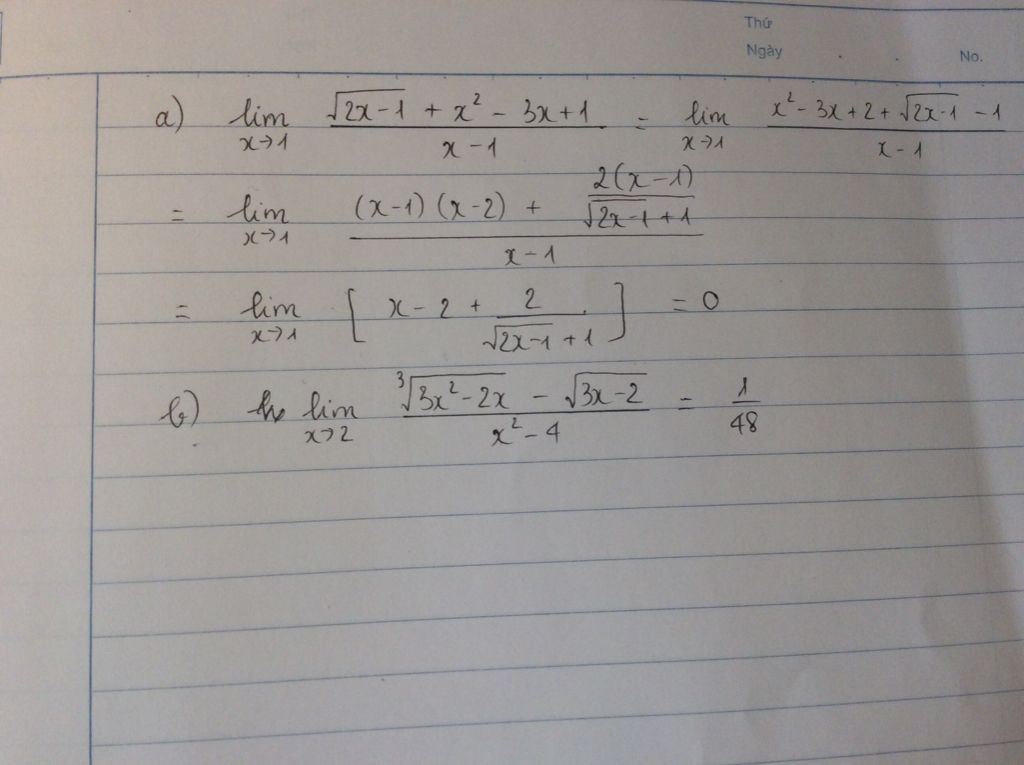 Thứ
Ngày . . No.
a) lim x→1 (√(2x-1) + x² - 3x+1)/(x-1) = lim x→1 (x² - 3x+2 + √(2x-1) - 1)/(x-1)
= lim x→1 ((x-1)(x-2) + 2(x-1)/(√(2x-1)+1))/(x-1)
= lim x→1 [x-2 + 2/(√(2x-1)+1)] = 0
b) lim x→2 (³√(3x²-2x) - √(3x-2))/(x²-4) = 1/48